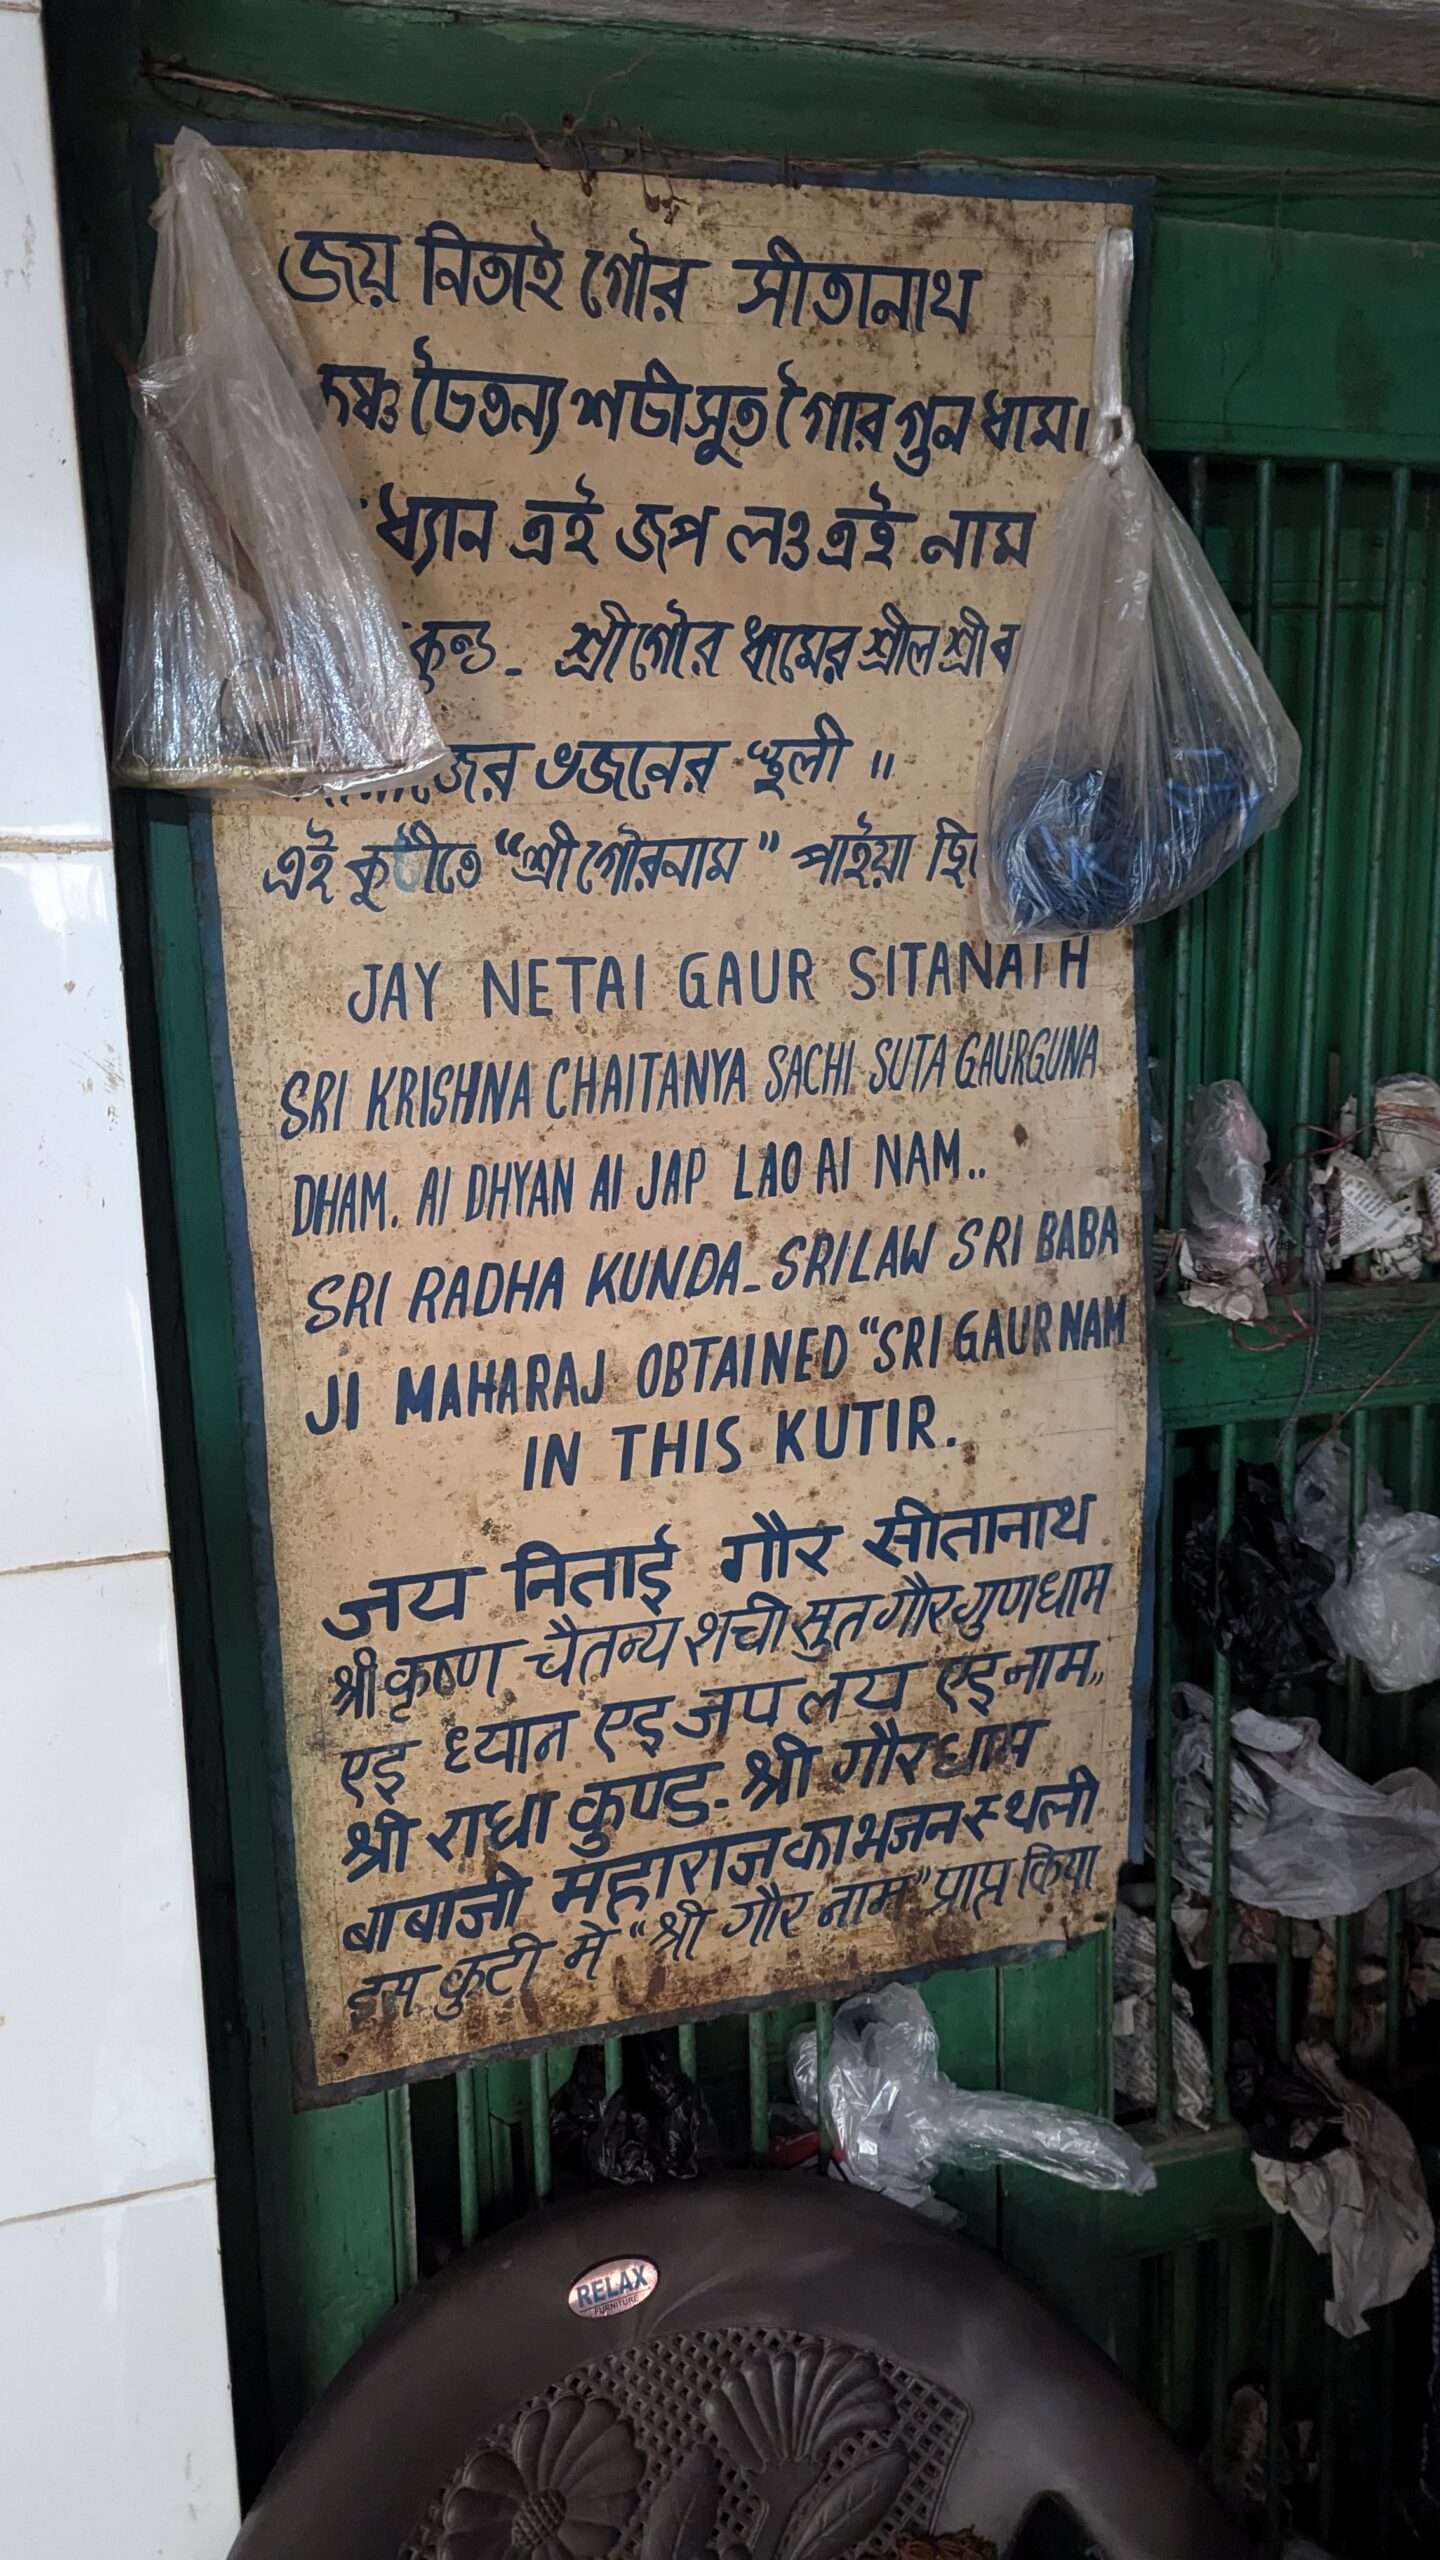 জয় নিতাই গৌর সীতানাথ
চৈতন্য শচীসুত গৌর গুন ধাম।
ধ্যান এই জপ লও এই নাম
কুন্ড - শ্রীগৌর ধামের শ্রীল শ্রী
ভজনের স্থলী ॥
এই কুটীতে "শ্রীগৌরনাম" পাইয়া
JAY NETAI GAUR SITANATH
SRI KRISHNA CHAITANYA SACHI SUTA GAURGUNA
DHAM. AI DHYAN AI JAP LAO AI NAM..
SRI RADHA KUNDA - SRILAW SRI BABA
JI MAHARAJ OBTAINED "SRI GAUR NAM
IN THIS KUTIR.
जय निताई गौर सीतानाथ
श्री कृष्ण चैतन्य शची सुत गौर गुणधाम
एइ ध्यान एइ जप लय एइ नाम,,
श्री राधा कुण्ड - श्री गौर धाम
बाबाजी महाराज का भजन स्थली
इस कुटी मे "श्री गौर नाम" प्राप्त किया
RELAX
FURNITURE